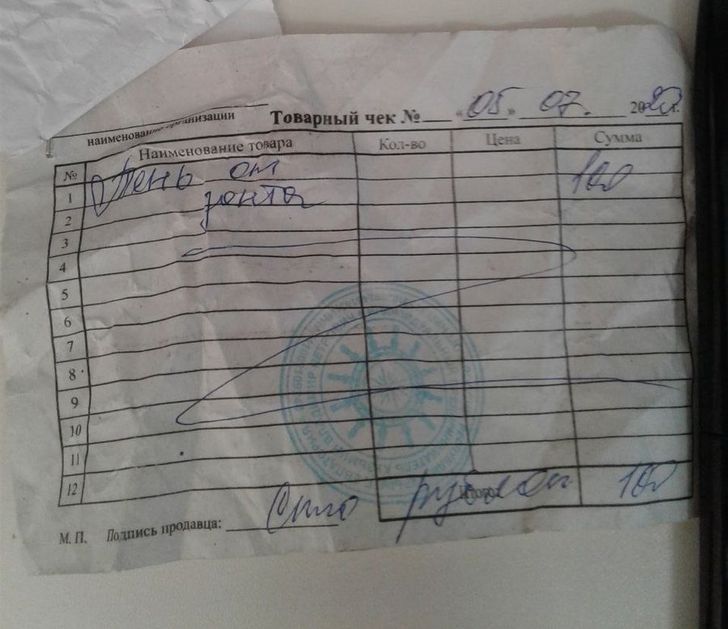 наименование организации
Товарный чек № « 05 » 07. 2020г.
№ Наименование товара Кол-во Цена Сумма
1 Тень от 100
2 зонта
3
4
5
6
7
8
9
10
11
12 Итого: 100
М. П. Подпись продавца: Сто рублей